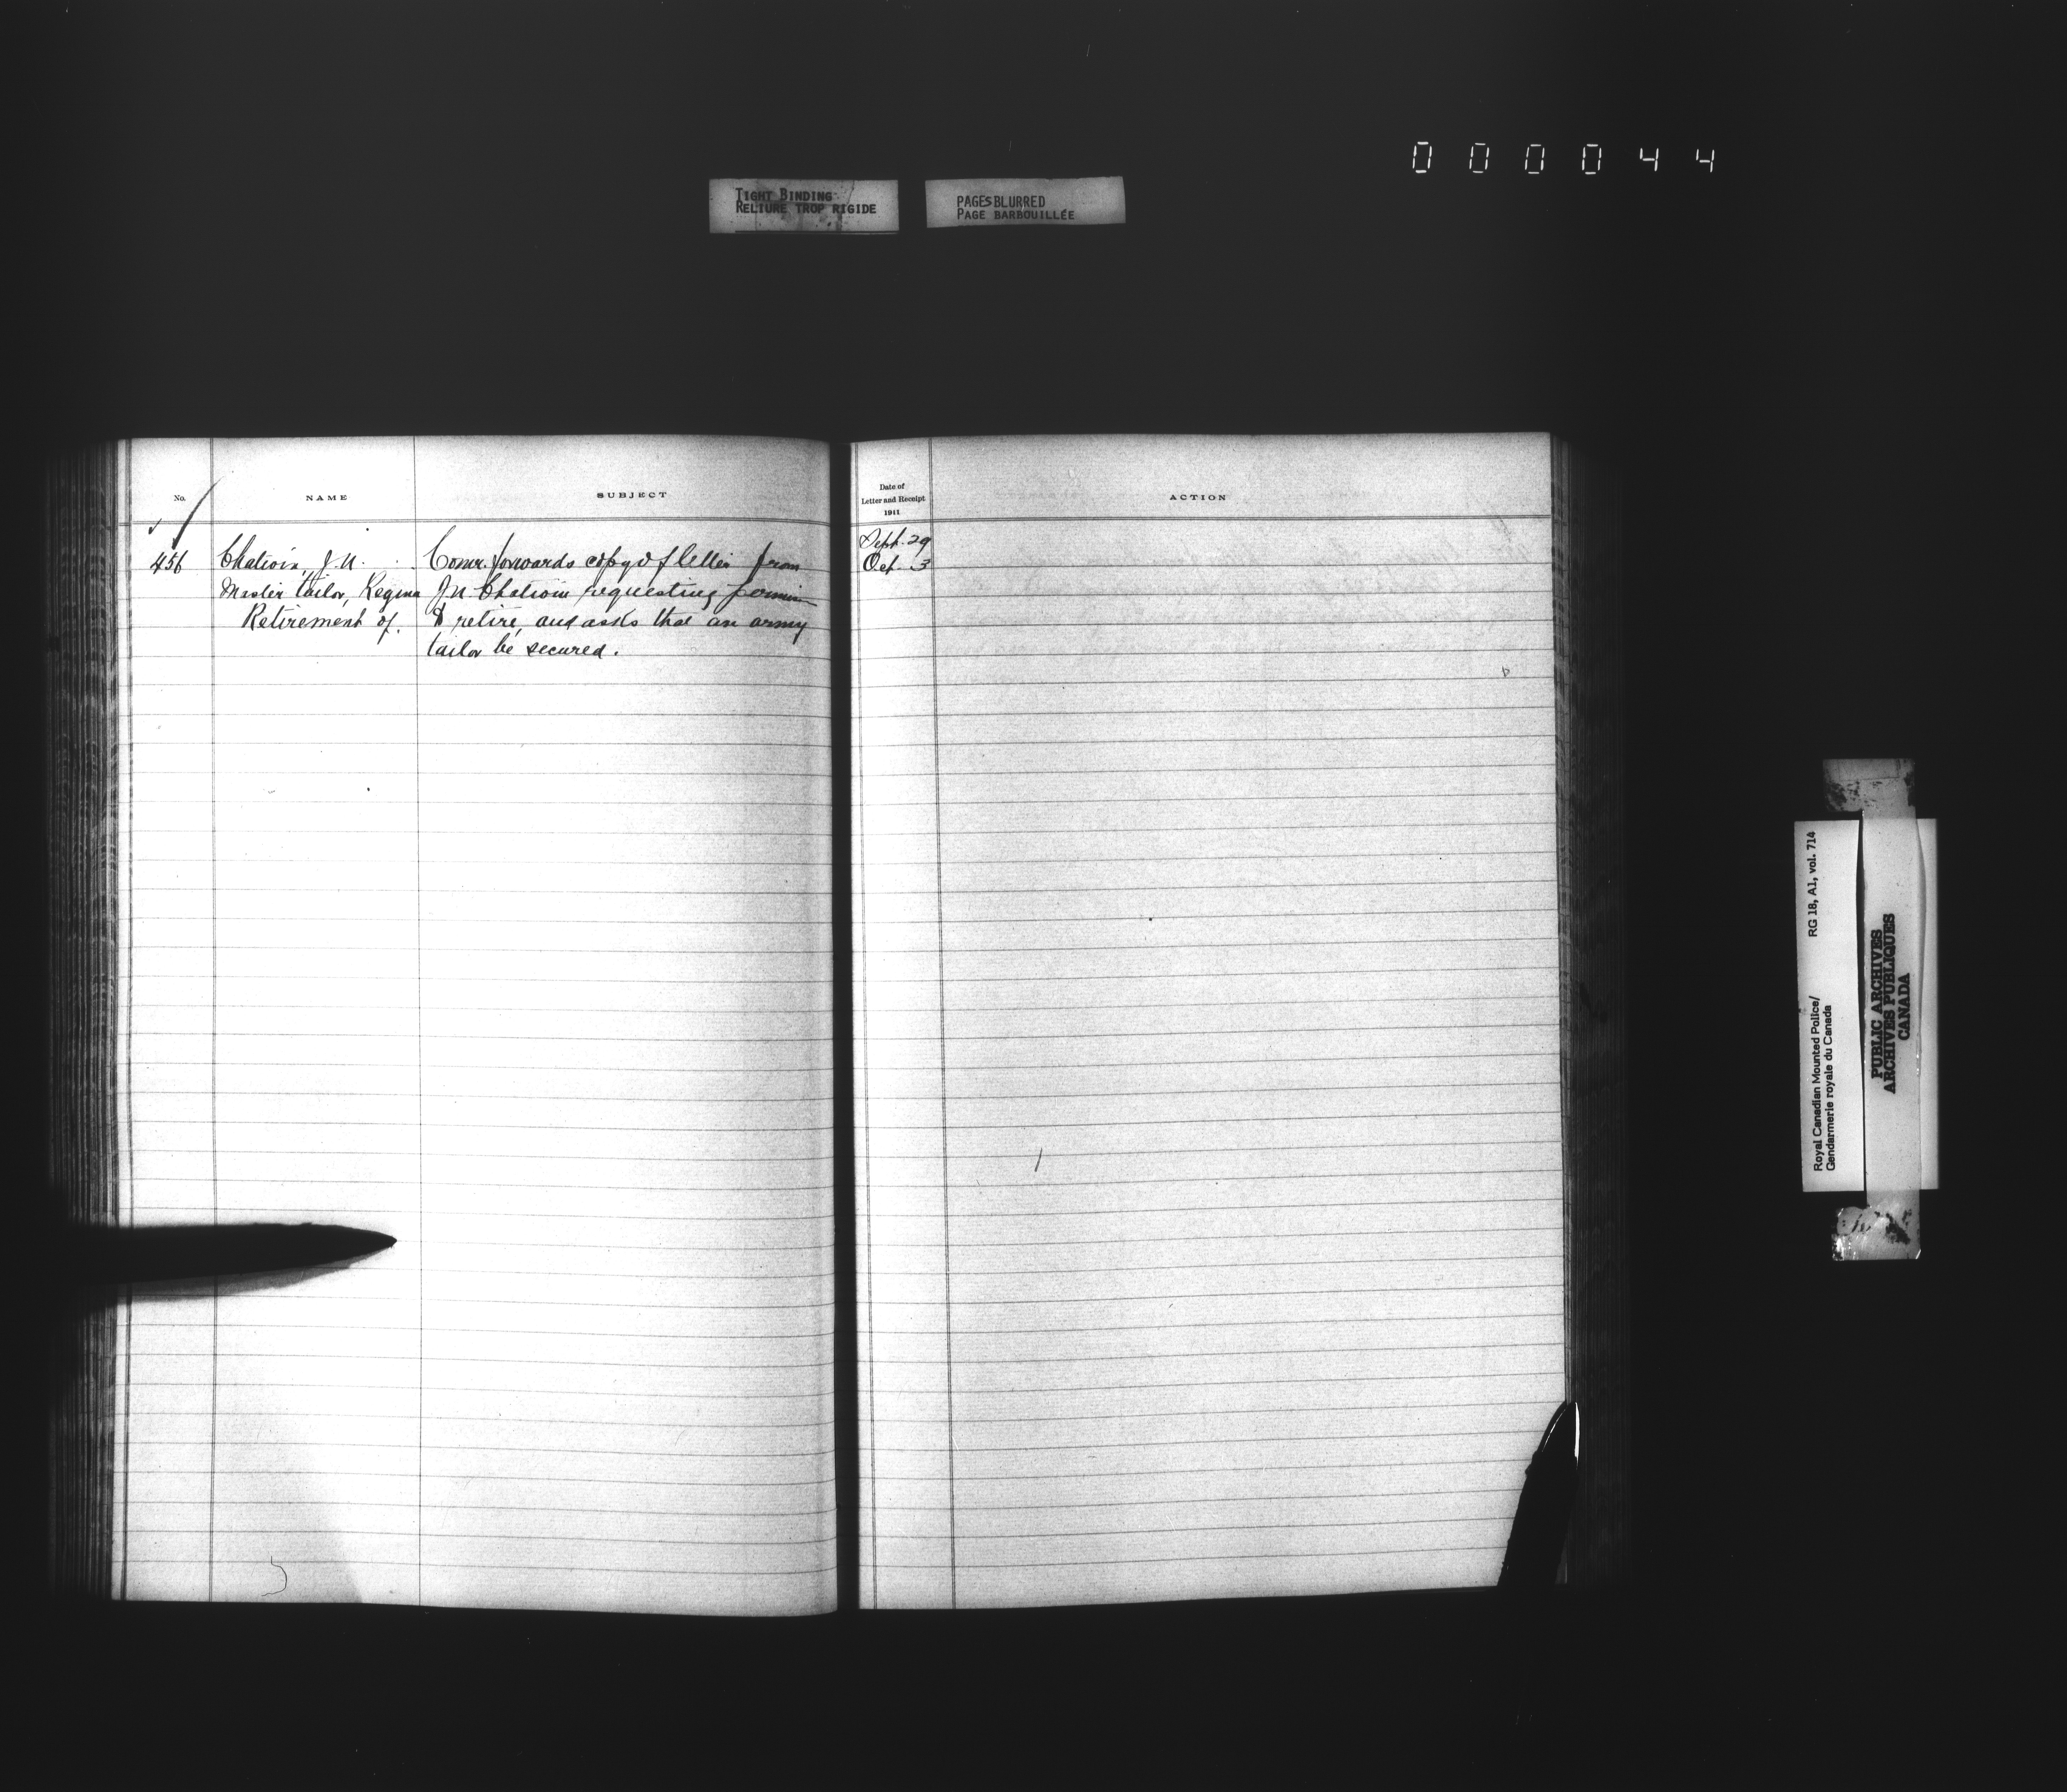 000044
TIGHT BINDING
RELIURE TROP RIGIDE
PAGES BLURRED
PAGE BARBOUILLÉE
No.
NAME
SUBJECT
Date of
Letter and Receipt
1911
ACTION
456
Chatioin, J.N.
Master tailor, Regina
Retirement of.
Comr. forwards copy of letter from
J.N. Chatioin requesting
to retire, and asks that an army
tailor be secured.
Sept. 29
Oct. 3
RG 18, A1, vol. 714
Royal Canadian Mounted Police/
Gendarmerie royale du Canada
PUBLIC ARCHIVES
ARCHIVES PUBLIQUES
CANADA